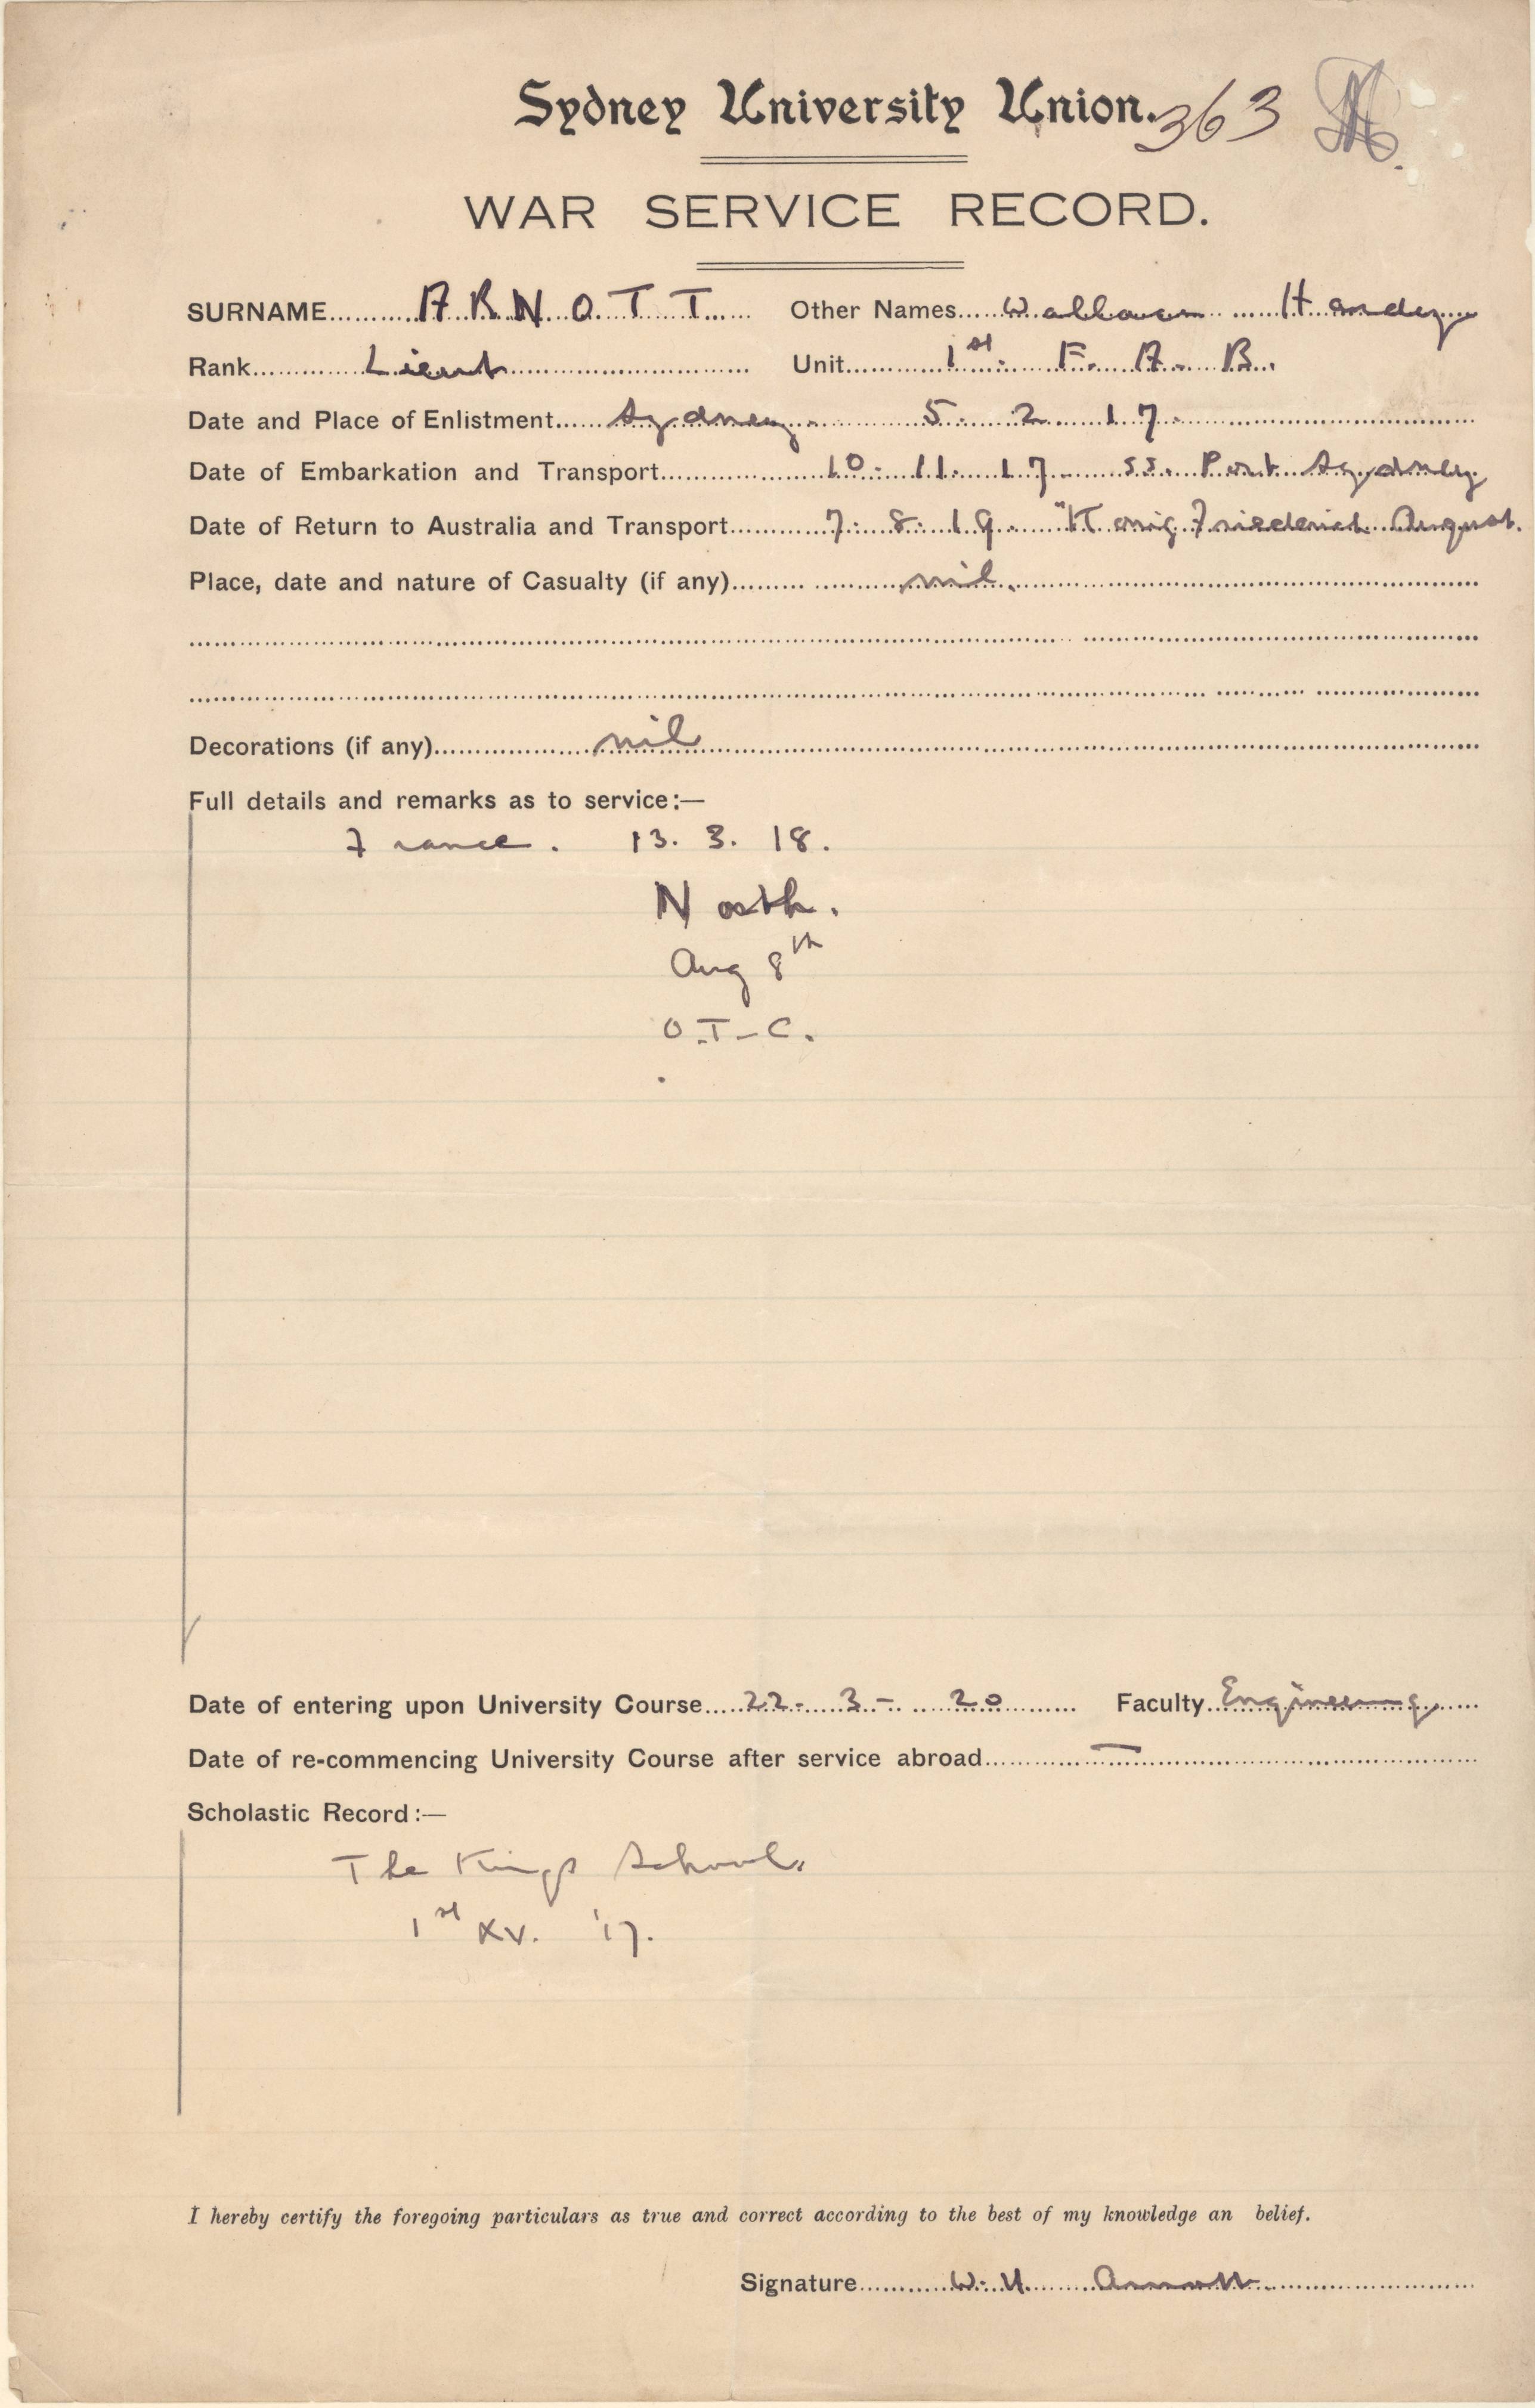 Sydney University Union. 363
WAR SERVICE RECORD.
SURNAME ARNOTT Other Names Handey
Rank Lieut Unit 1st F. A. B.
Date and Place of Enlistment Sydney. 5. 2. 17.
Date of Embarkation and Transport 10. 11. 17. ss. Port Sydney
Date of Return to Australia and Transport 7. 8. 19. "Konig Friederich August.
Place, date and nature of Casualty (if any) nil.
Decorations (if any) nil
Full details and remarks as to service:—
France. 13. 3. 18.
Aug 8th
O.T.C.
Date of entering upon University Course 22. 3 - 20 Faculty Engineering
Date of re-commencing University Course after service abroad —
Scholastic Record:—
The Kings School.
1st XV. '17.
I hereby certify the foregoing particulars as true and correct according to the best of my knowledge an belief.
Signature W. H. Arnott